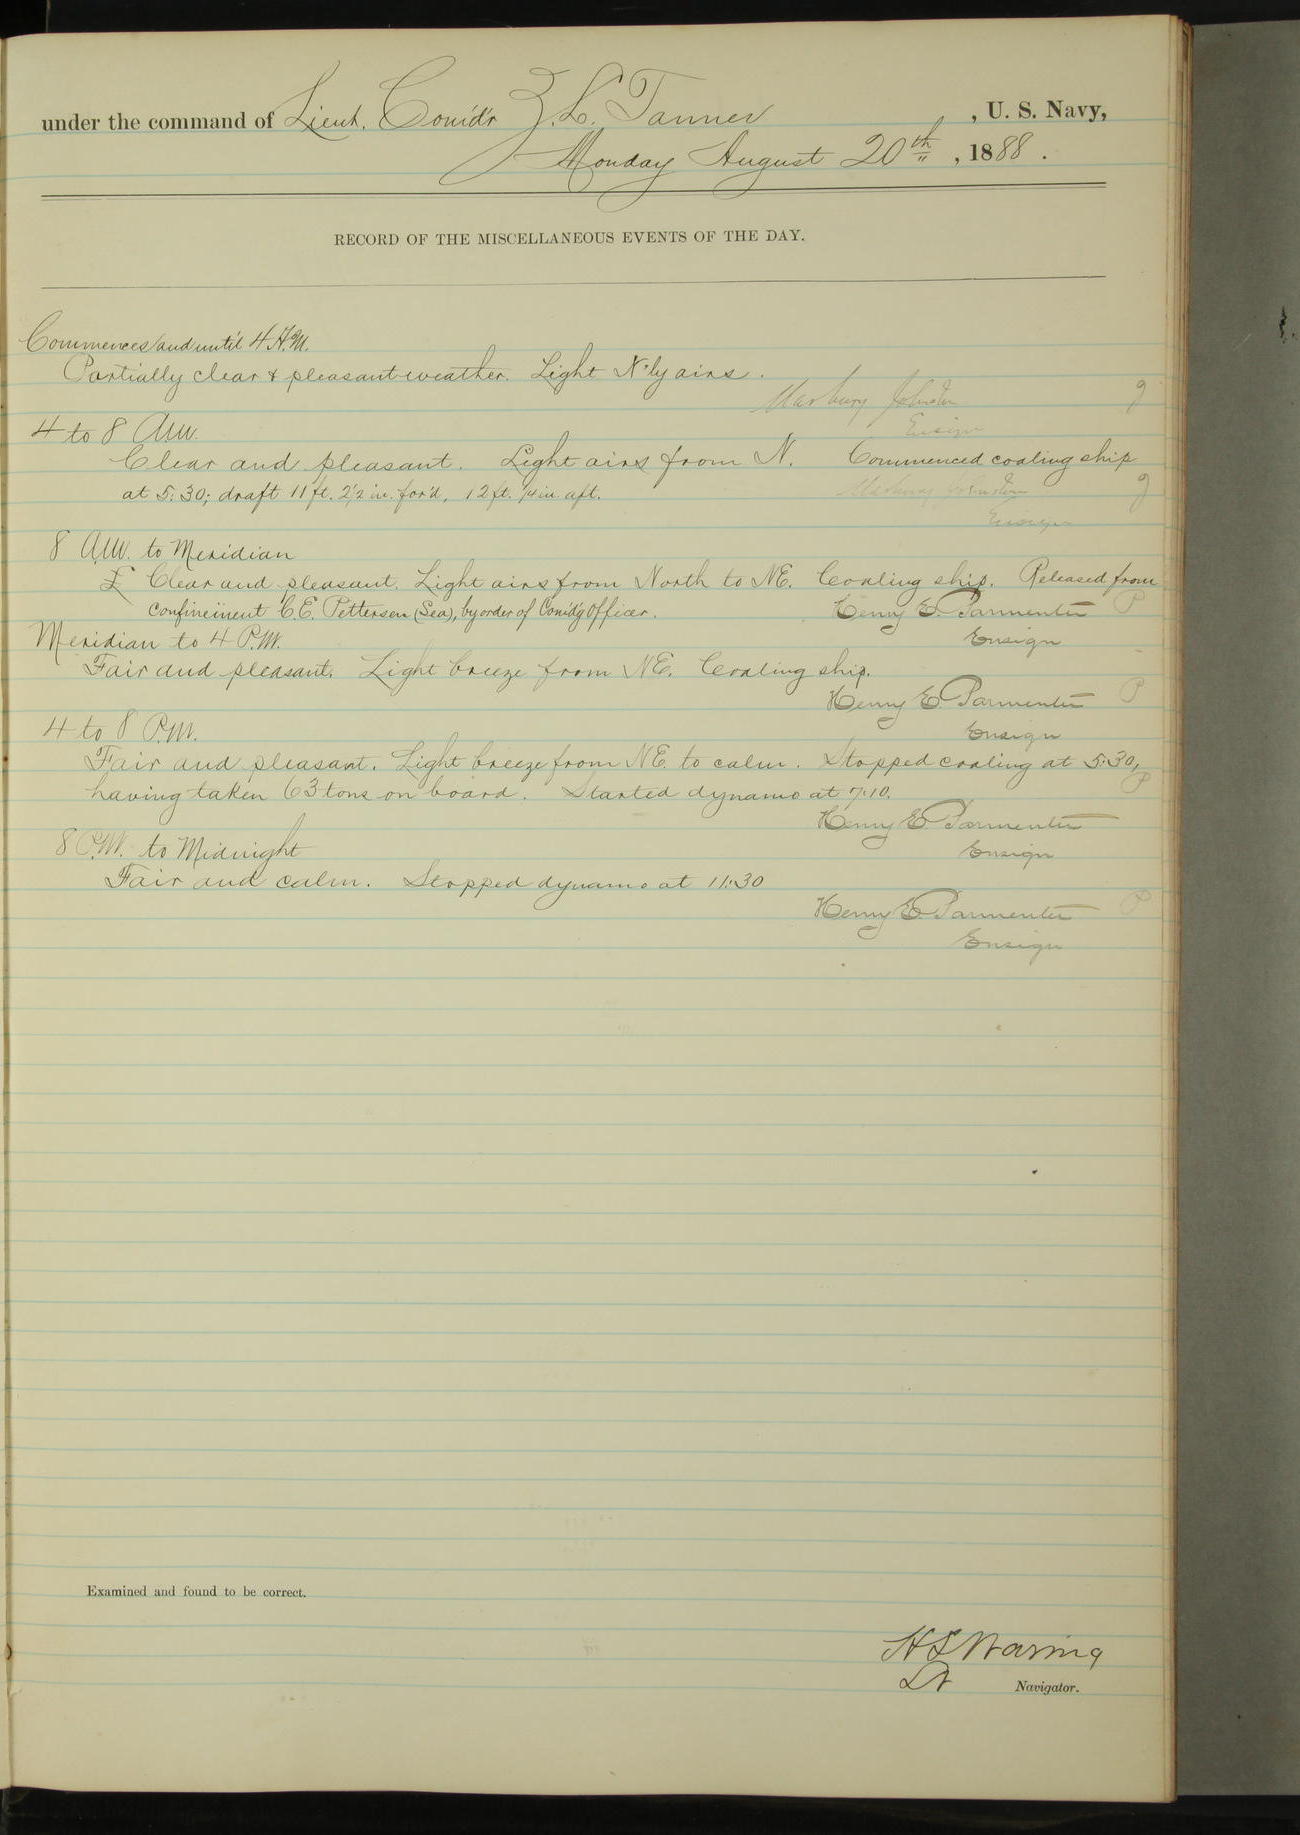 under the command of Lieut. Comd'r Z. L. Tanner, U. S. Navy,
Monday August 20th, 1888.
RECORD OF THE MISCELLANEOUS EVENTS OF THE DAY.
Commences and until 4 A.M.
Partially clear & pleasant weather. Light N'ly airs.
Marbury Johnston
Ensign
4 to 8 A.M.
Clear and pleasant. Light airs from N. Commenced coaling ship
at 5:30; draft 11 ft. 2 1/2 in. for'd, 12 ft. 1/4 in. aft.
Marbury Johnston
Ensign
8 A.M. to Meridian
Clear and pleasant. Light airs from North to NE. Coaling ship. Released from
confinement C. E. Pettersen (Sea), by order of Com'd'g Officer.
Henry E. Parmenter P
Ensign
Meridian to 4 P.M.
Fair and pleasant. Light breeze from NE. Coaling ship.
Henry E. Parmenter P
Ensign
4 to 8 P.M.
Fair and pleasant. Light breeze from NE. to calm. Stopped coaling at 5:30,
having taken 63 tons on board. Started dynamo at 7:10. P
Henry E. Parmenter
Ensign
8 P.M. to Midnight
Fair and calm. Stopped dynamo at 11:30
Henry E. Parmenter P
Ensign
Examined and found to be correct.
H S Waring
Lt Navigator.